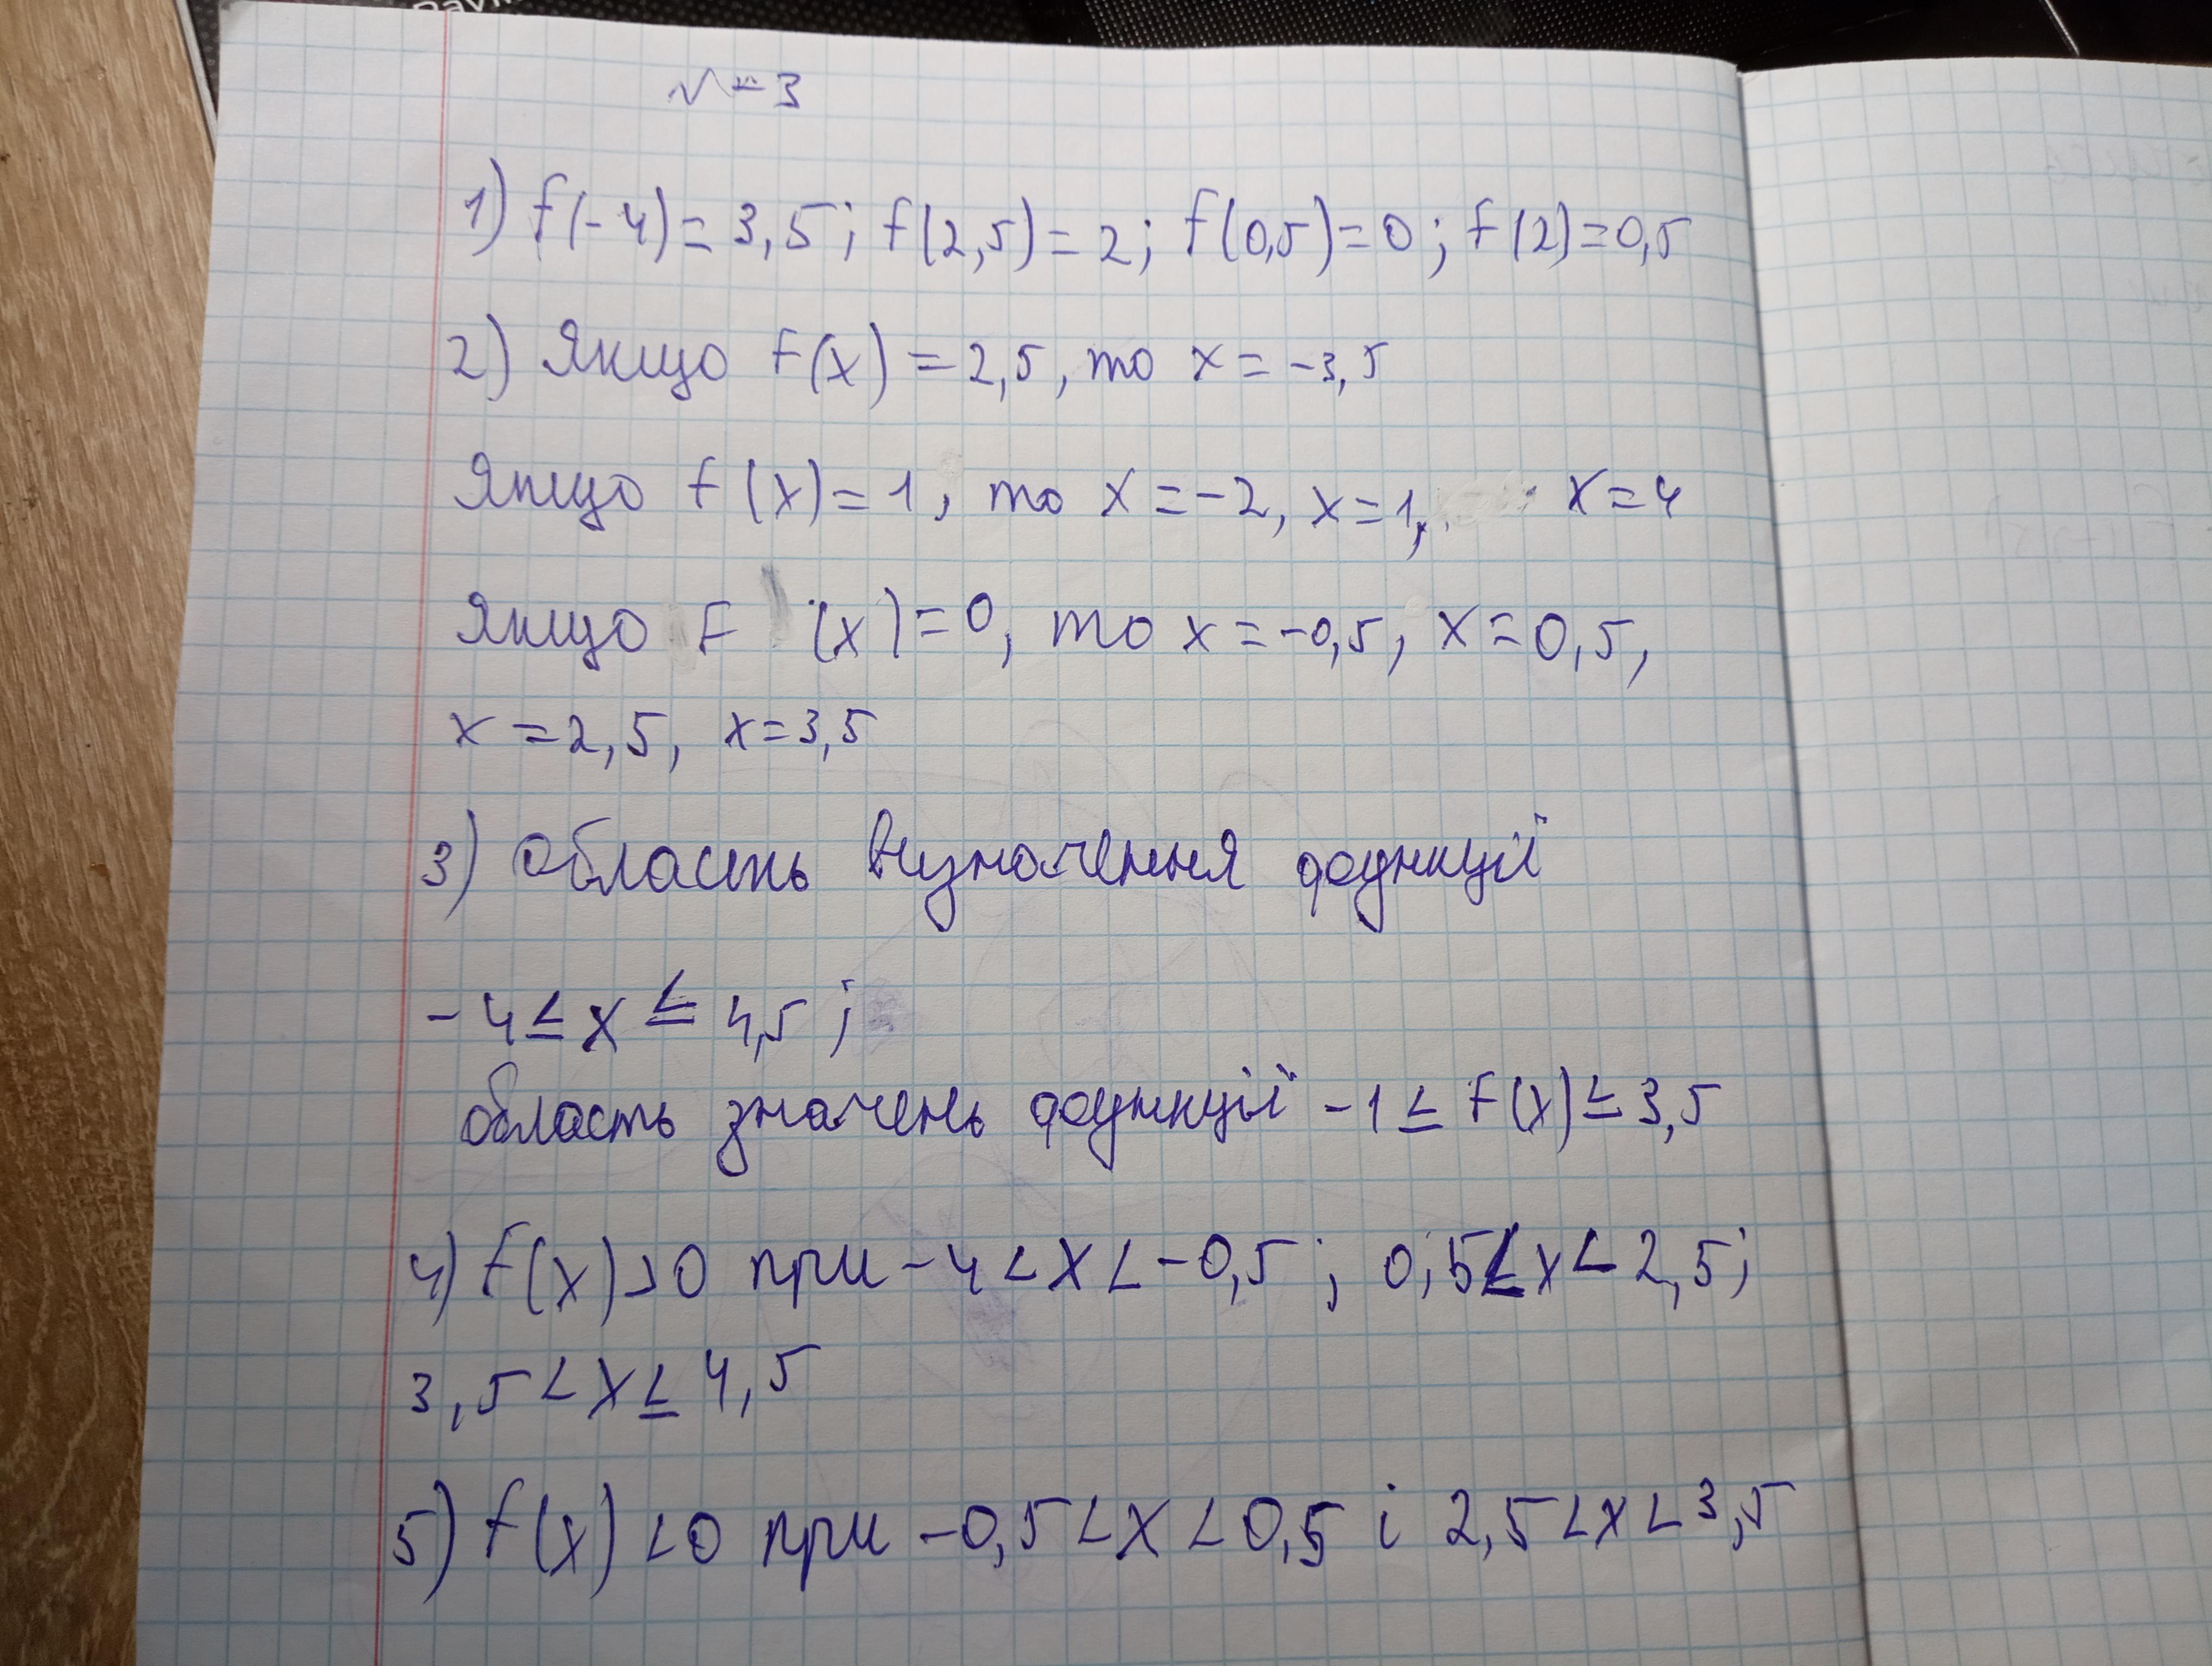 №3
1) f(-4)=3,5; f(2,5)=2; f(0,5)=0; f(2)=0,5
2) Якщо f(x)=2,5, то x=-3,5
Якщо f(x)=1, то x=-2, x=1, x=4
Якщо F (x)=0, то x=-0,5, x=0,5,
x=2,5, x=3,5
3) Область визначення функції
-4≤x≤4,5;
область значень функції -1≤f(x)≤3,5
4) f(x)>0 при -4<x<-0,5; 0,5<x<2,5;
3,5<x≤4,5
5) f(x)<0 при -0,5<x<0,5 і 2,5<x<3,5